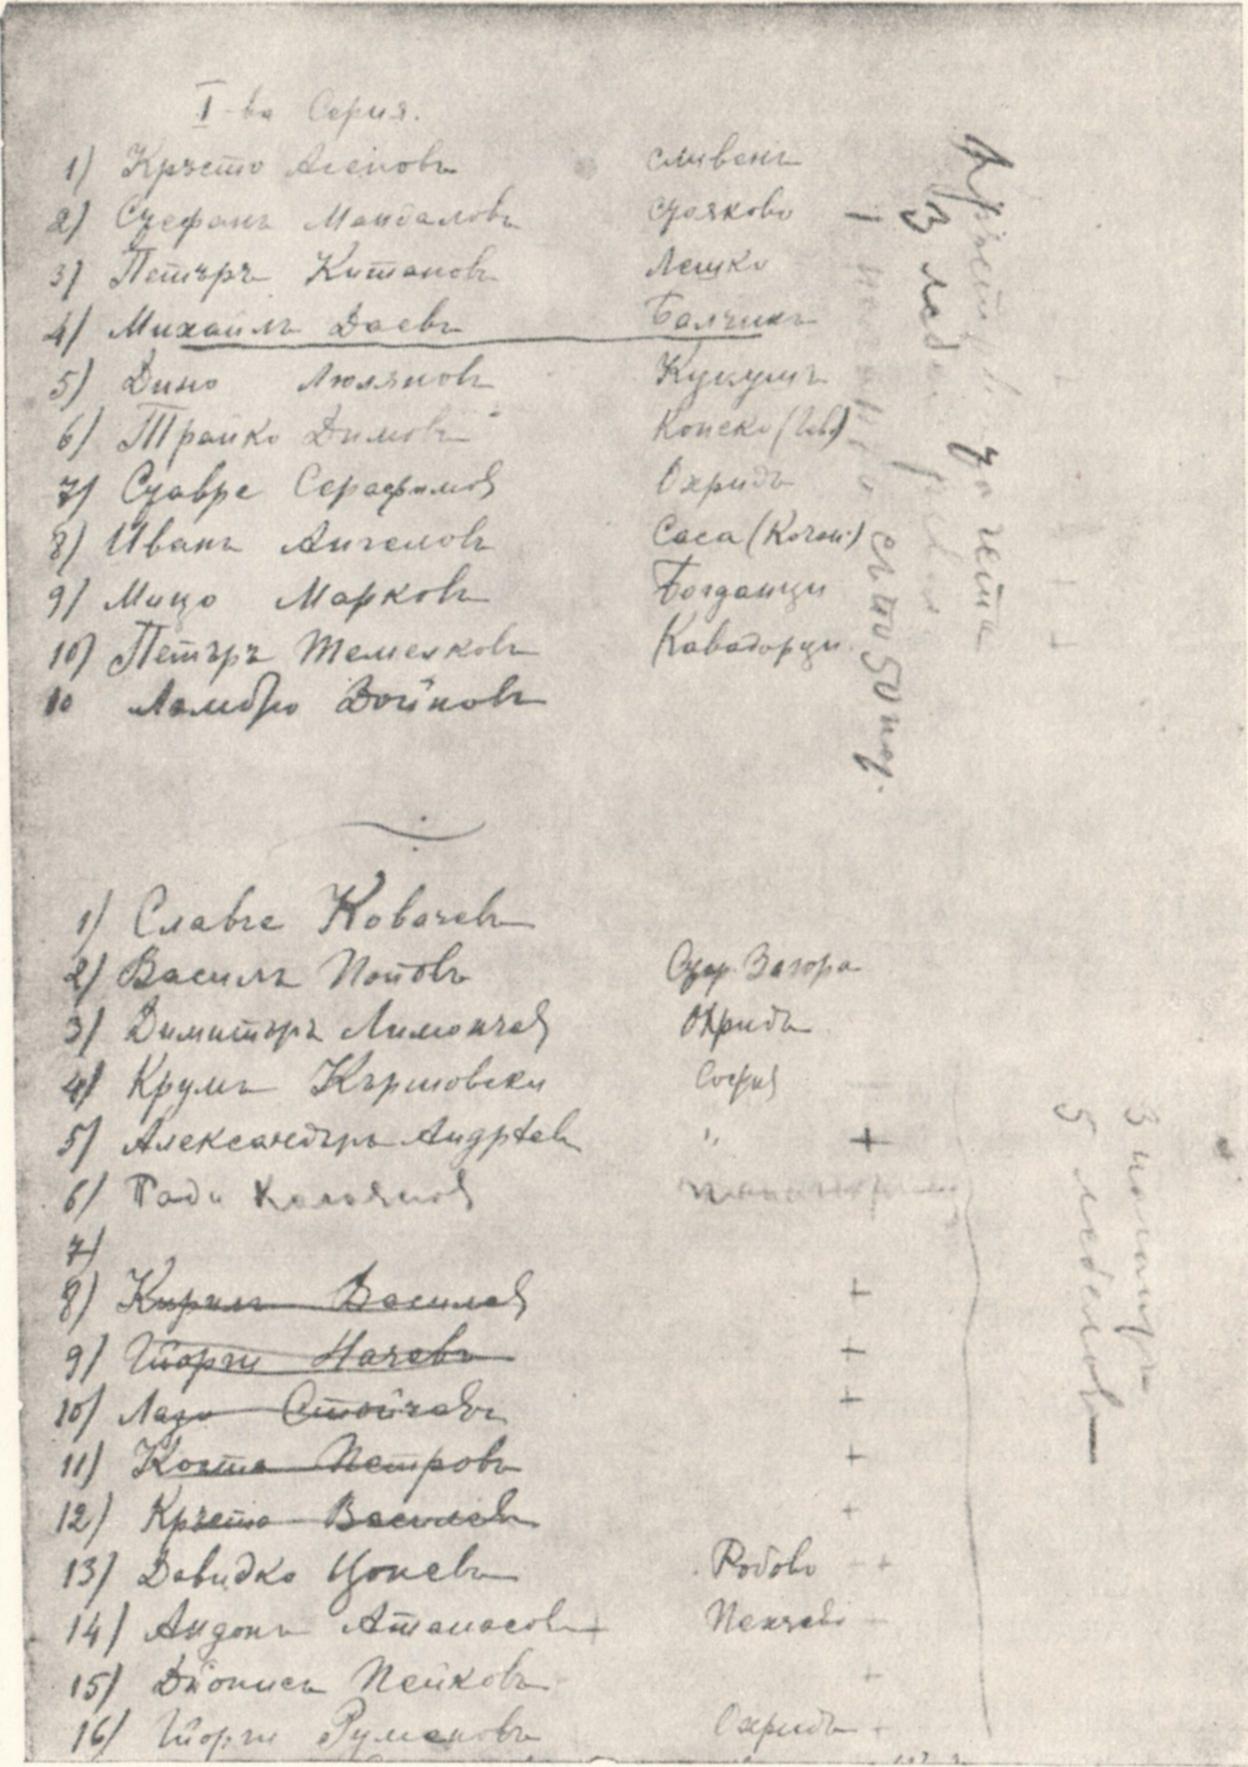 I-ва Серия.
1) Кръсто Асеновъ Сливенъ
2) Стефанъ Мандаловъ Стояково
3) Петъръ Китановъ Лешко
4) Михаилъ Даевъ Балчикъ
5) Дино Люляновъ Кукушъ
6) Трайко Димовъ Конско (Гевг)
7) Ставре Серафимов Охридъ
8) Иванъ Ангеловъ Саса (Кочан.)
9) Мицо Марковъ Богданци
10) Петъръ Темелковъ Кавадарци.
10 Ламбро Войновъ
1) Славче Ковачевъ
2) Василъ Поповъ Стар. Загора
3) Димитъръ Лимончев Охридъ
4) Крумъ Кършовски София
5) Александъръ Андрѣевъ " +
6) Гади
7)
8) Кирилъ Василев +
9) Гйорги Начевъ +
10) Лазо Стойчевъ +
11) Коста Петровъ +
12) Кръсто Василевъ +
13) Давидко Цоневъ Робово +
14) Андонъ Атанасовъ Пехчево
15) Дионисъ Пейковъ +
16) Гйорги Румановъ Охридъ
за чета
3
1 съ 50 пат.
3
5